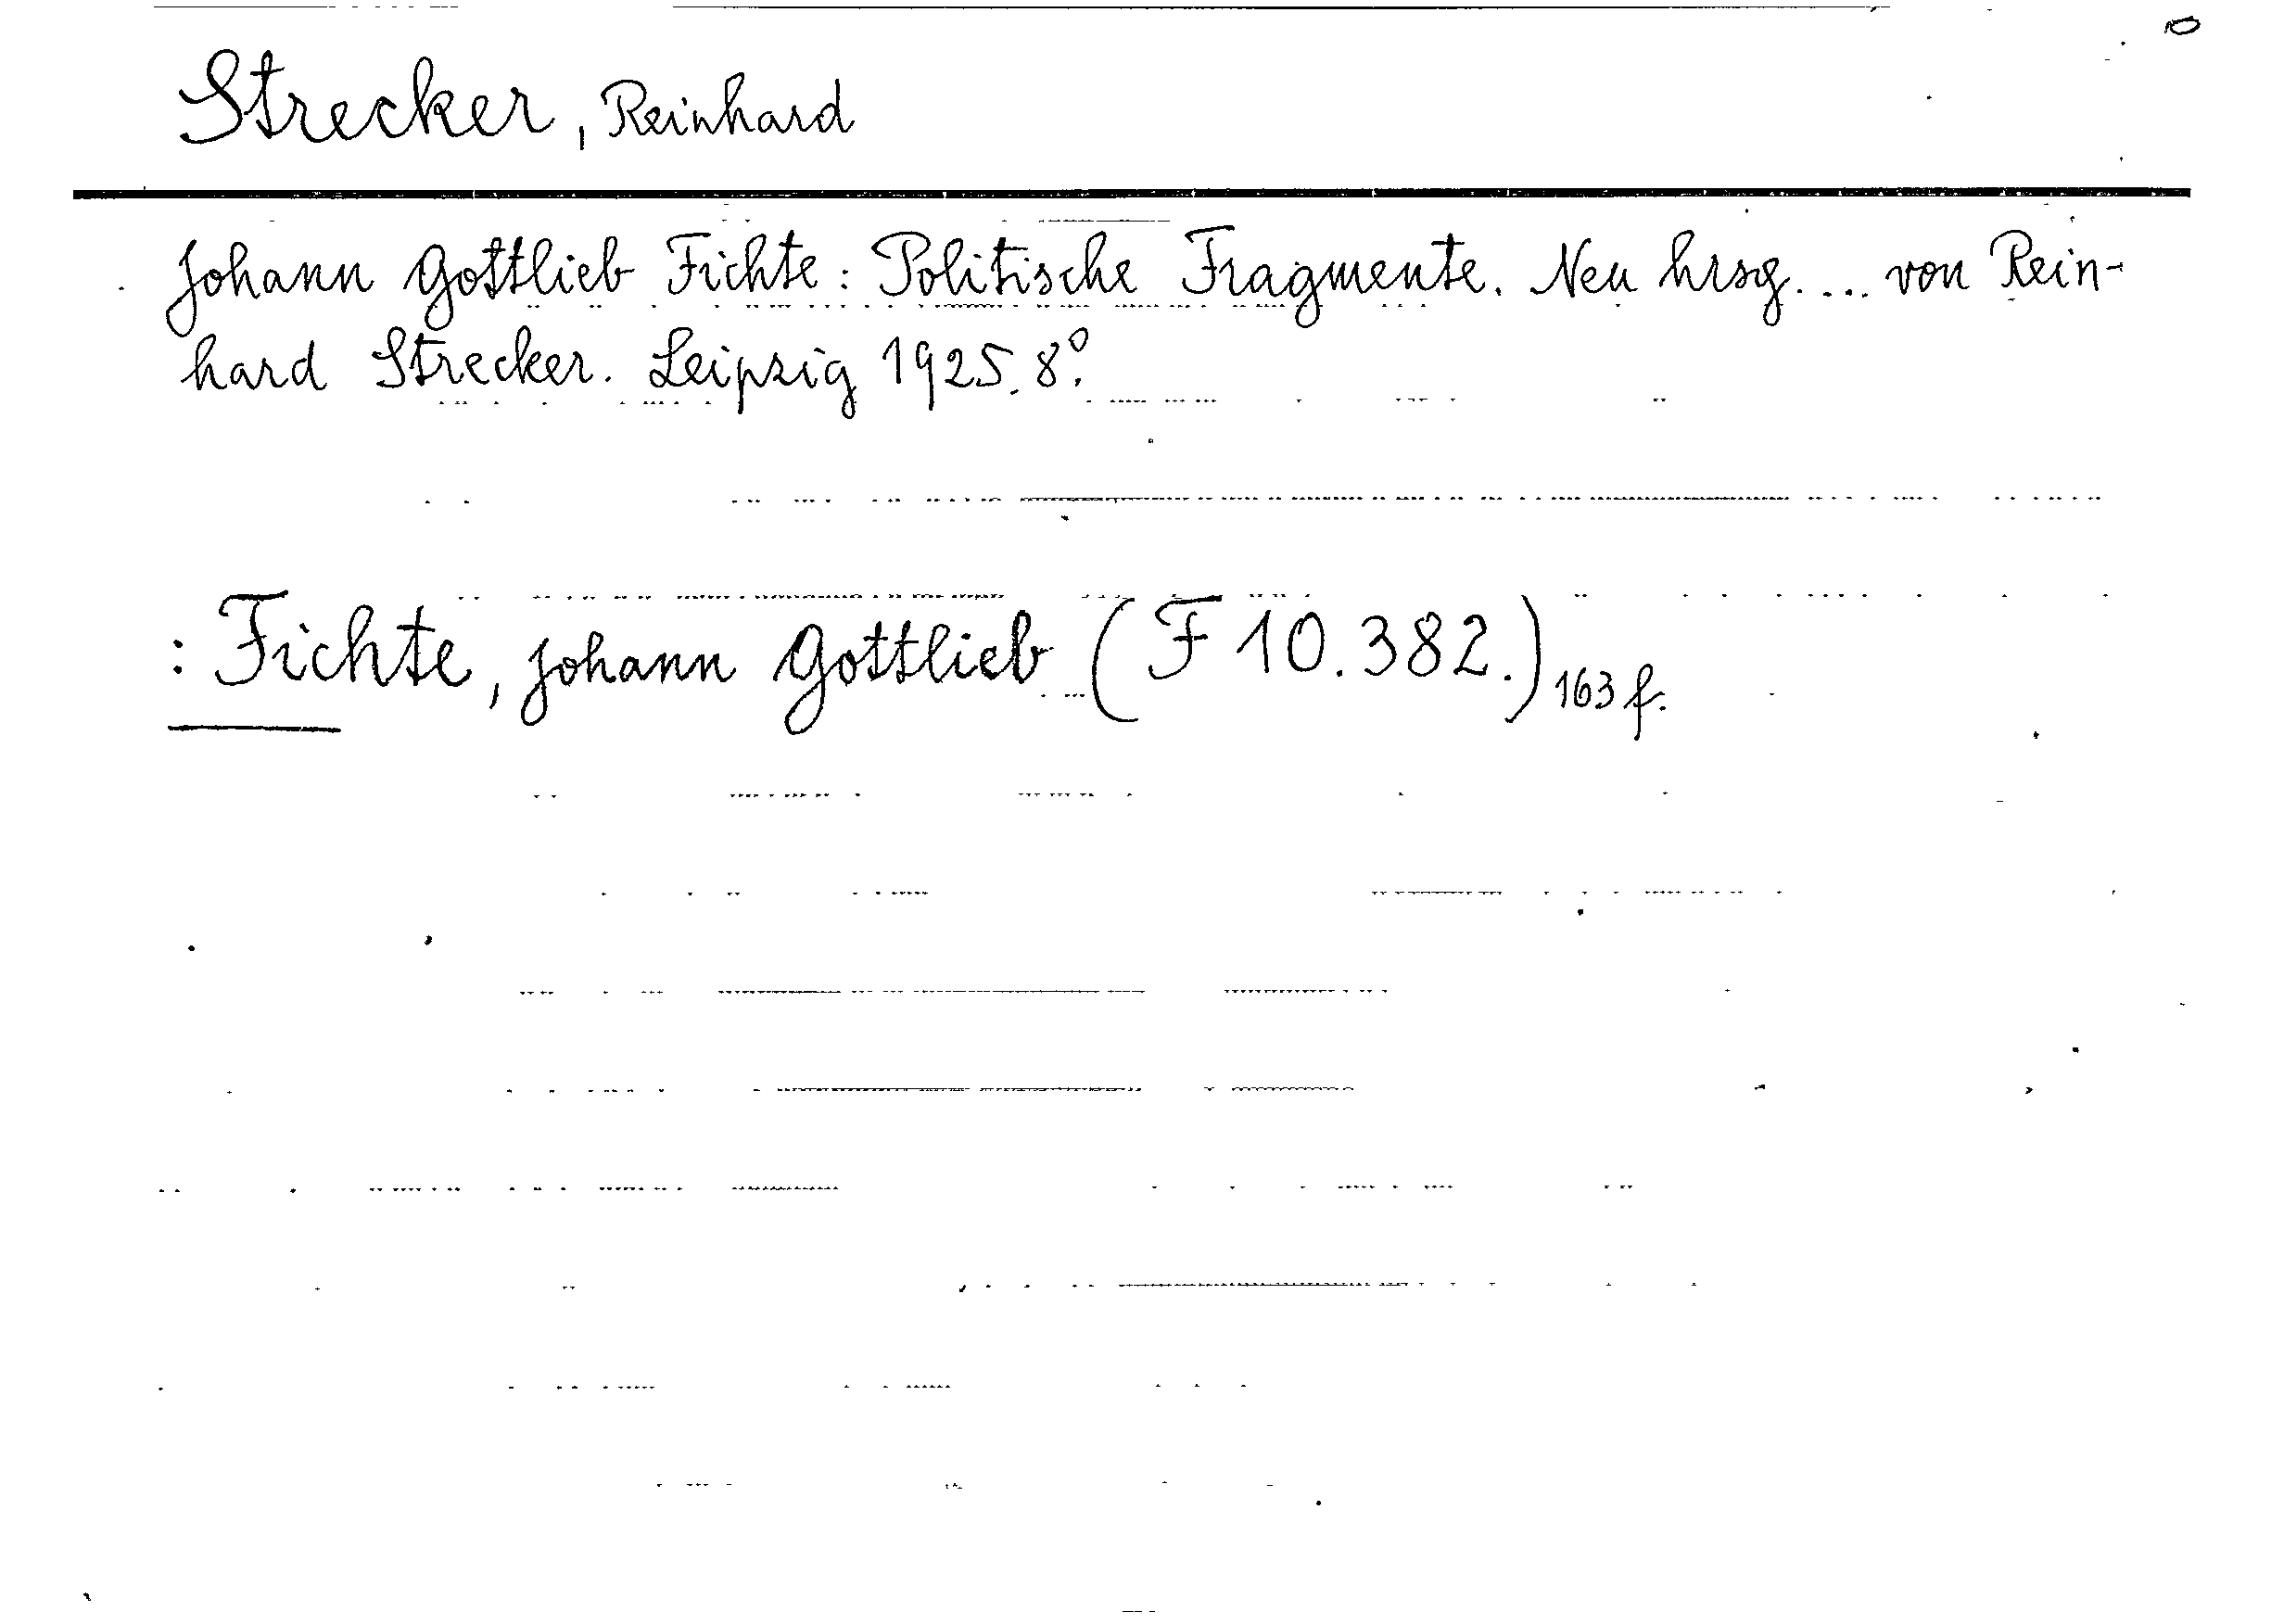 Strecker, Reinhard
Johann Gottlieb Fichte: Politische Fragmente. Neu hrsg. ... von Rein-
hard Strecker. Leipzig 1925. 8°.
: Fichte, Johann Gottlieb (F 10.382.) 163 f.